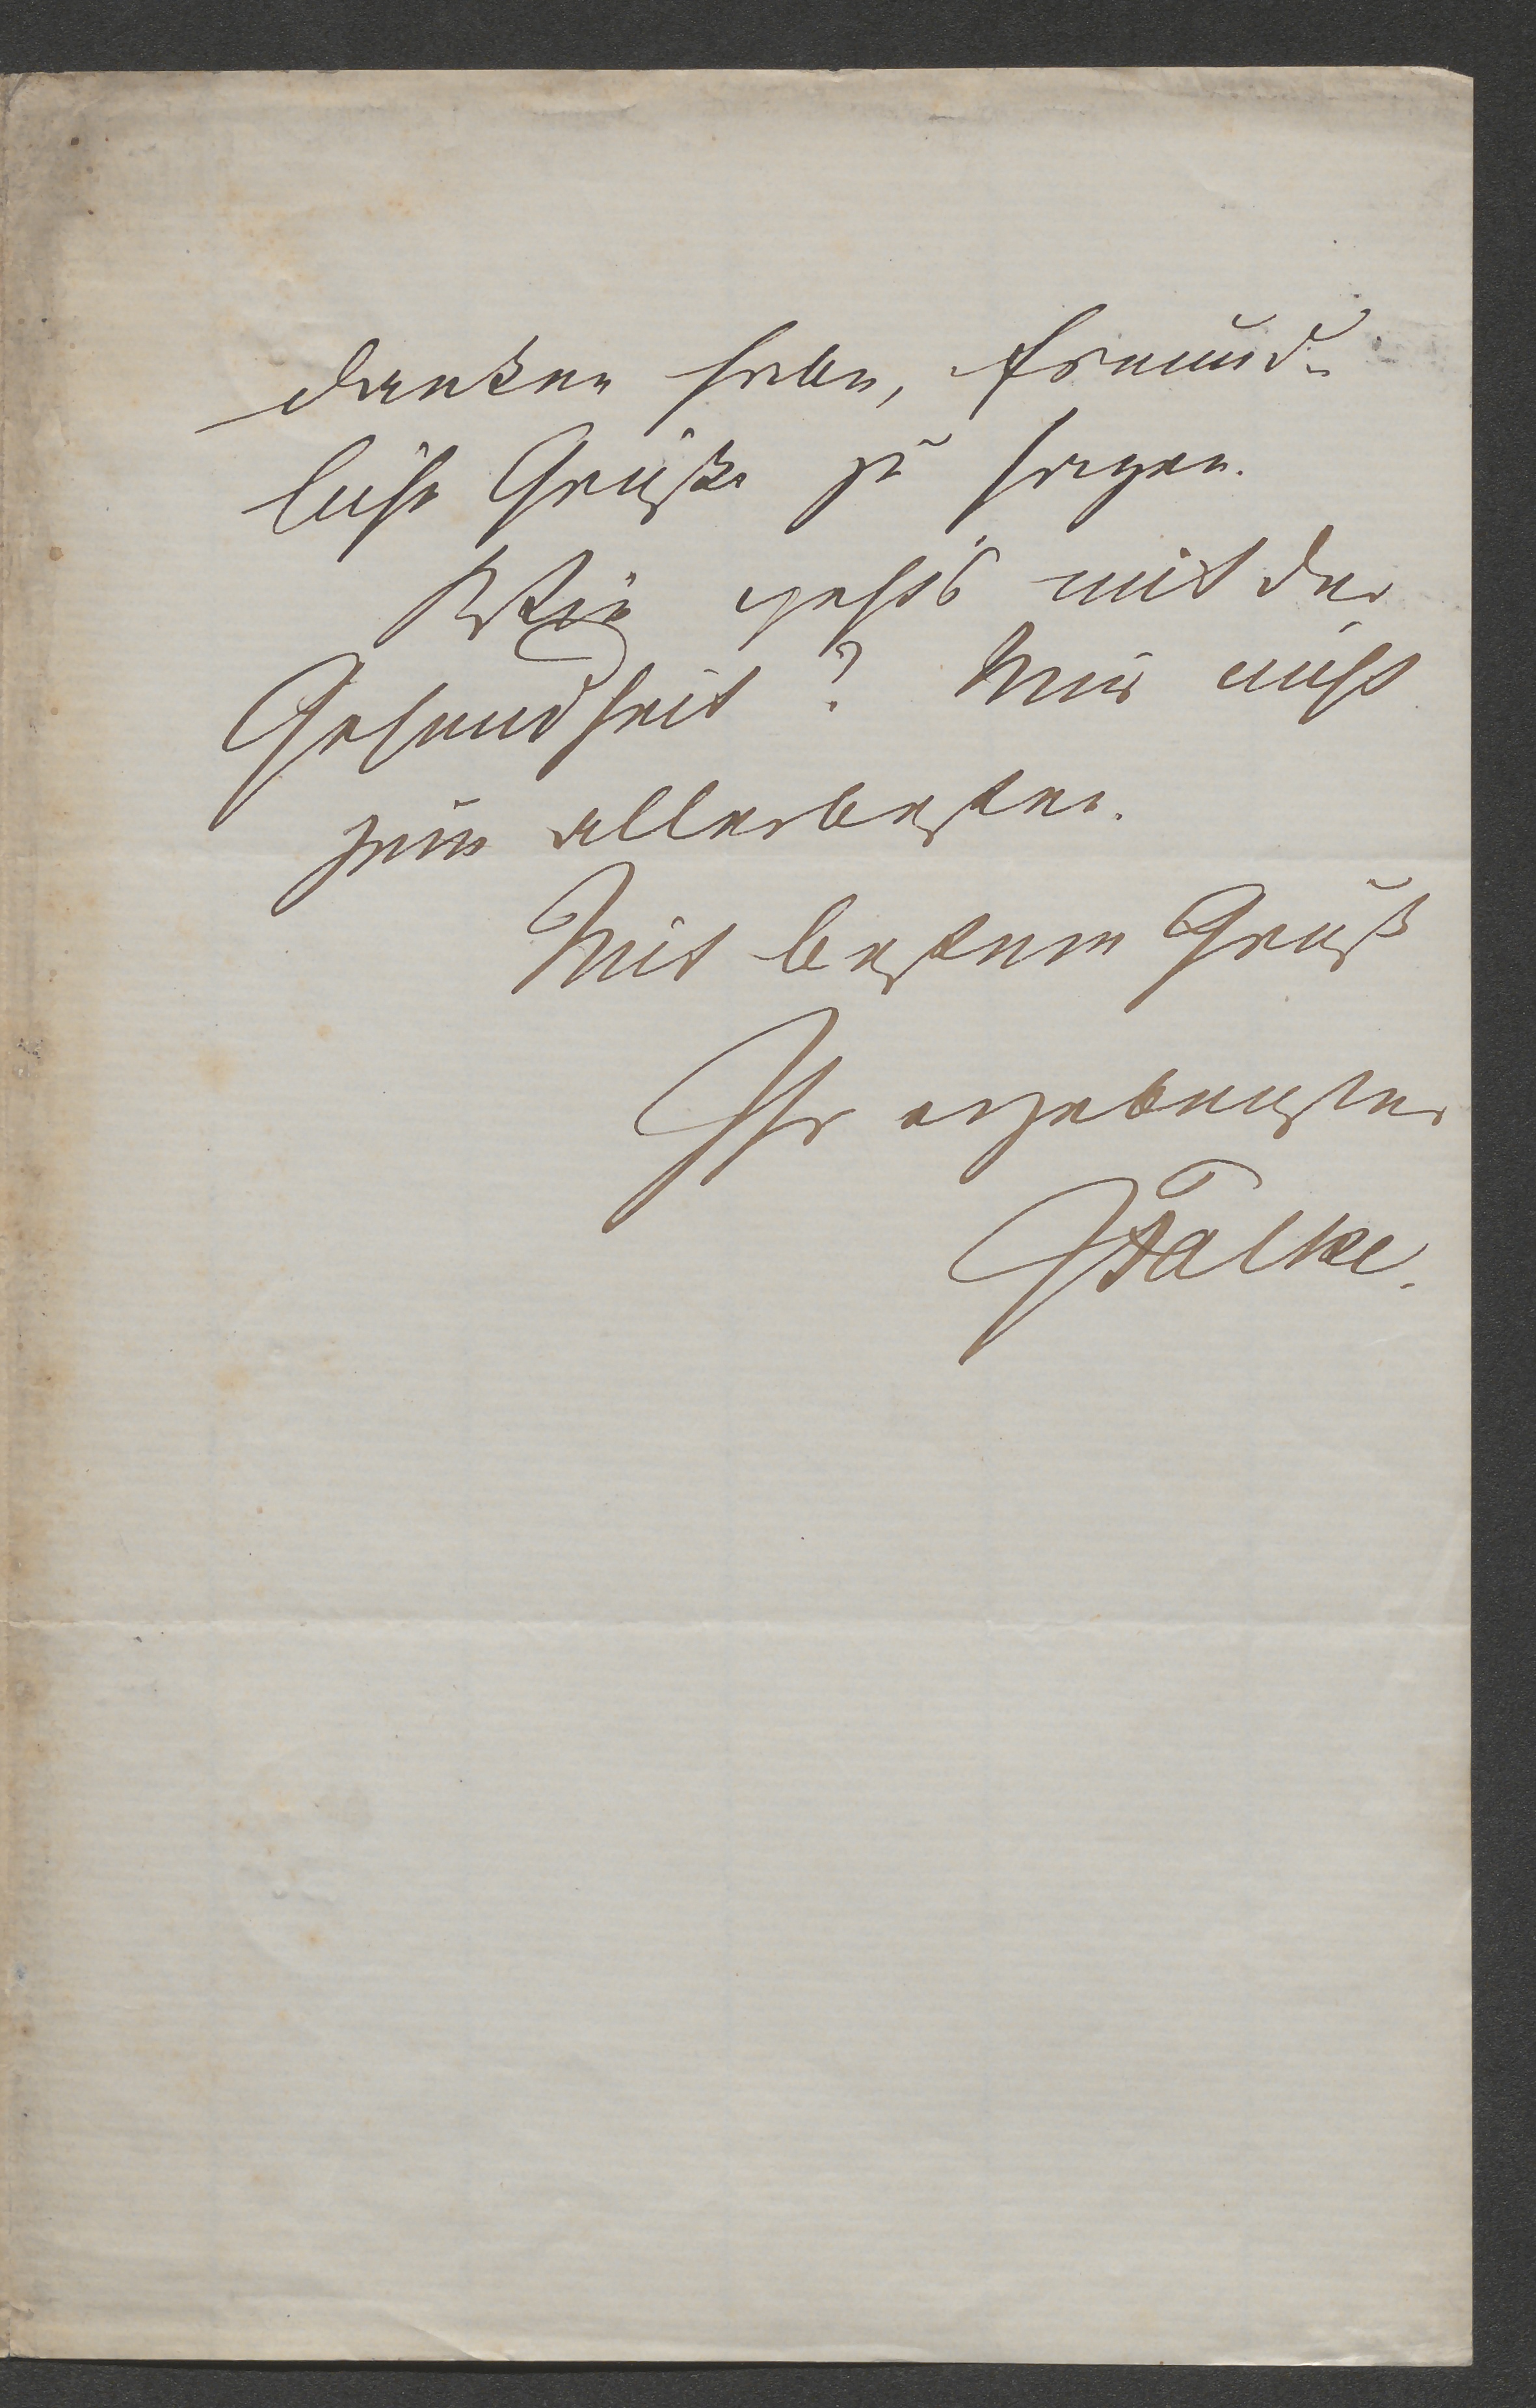 danken habe, freund-
liche Grüße zu sagen.
Wie geht's mit der
Gesundheit? Mir nicht
zum allerbesten.
Mit bestem Gruß
Ihr ergebenster
JFalke.